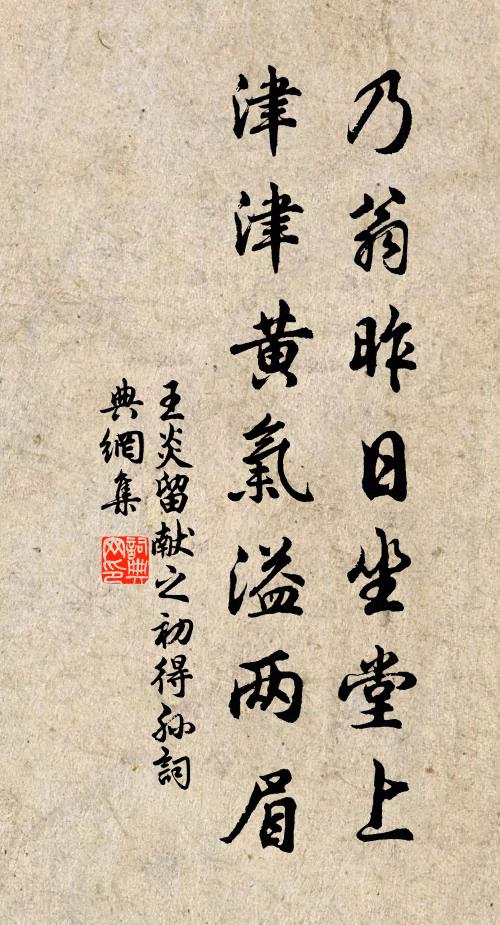 乃翁昨日坐堂上
津津黄氣溢两眉
王炎留献之初得孙詞
典網集
詞典
网印